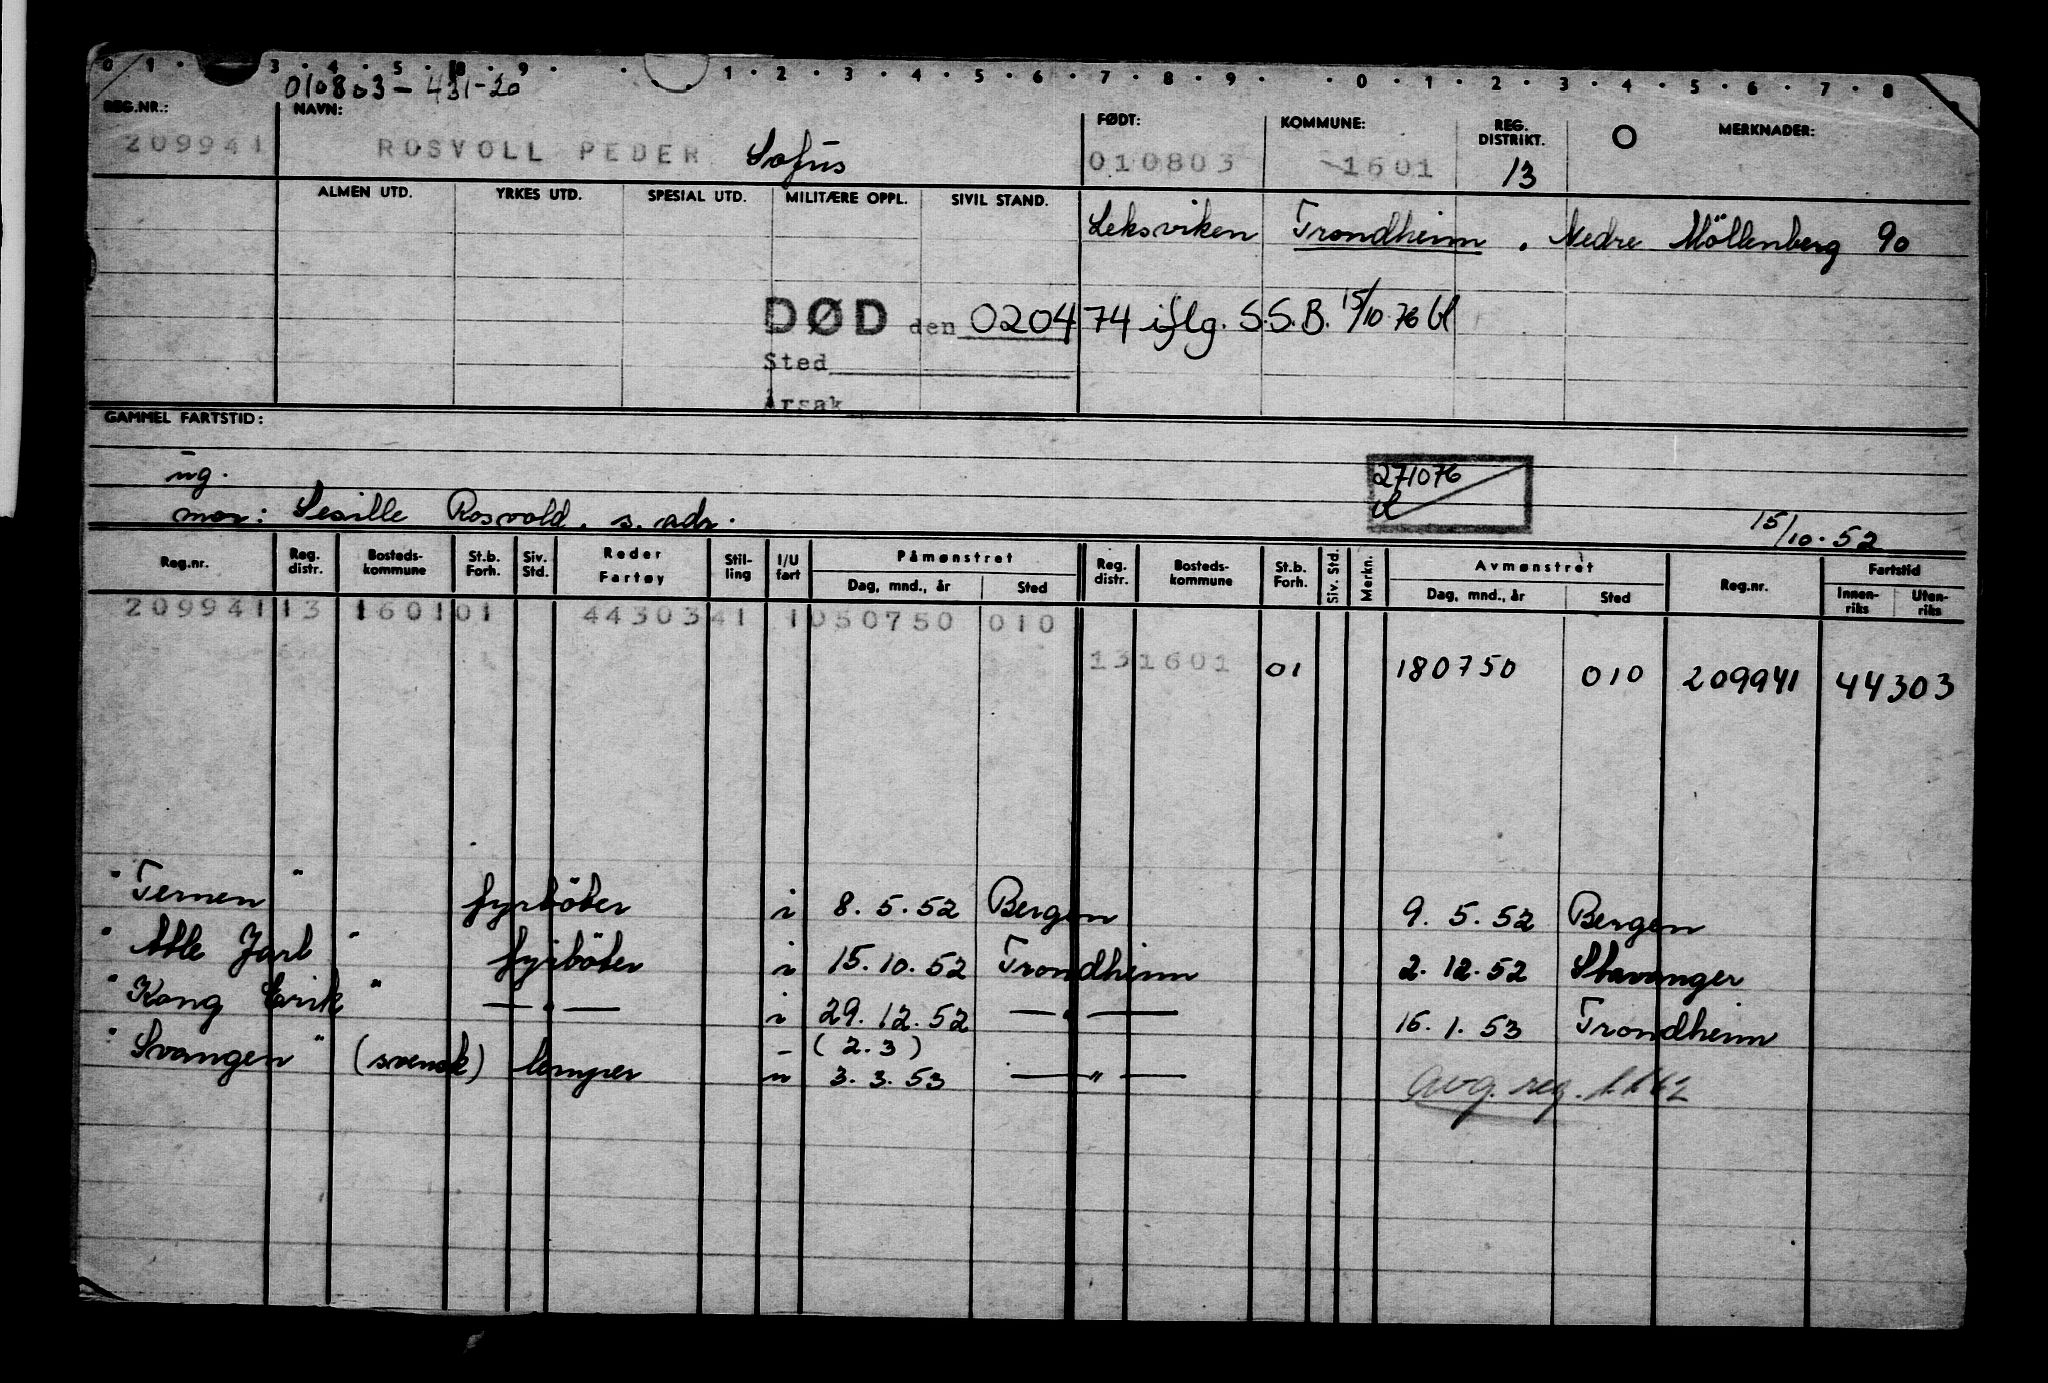 0 1 3 4 5 8 9 1 2 3 4 5 6 7 8 9 0 1 2 3 4 5 6 7 8
010803-431-20
REG.NR.: NAVN: FØDT: KOMMUNE: REG. DISTRIKT. O MERKNADER:
209941 ROSVOLL PEDER Sofus 010803 -1601 13
ALMEN UTD. YRKES UTD. SPESIAL UTD. MILITÆRE OPPL. SIVIL STAND.
Leksviken Trondheim. Nedre Möllenberg 90
DØD den 020474 iflg. S.S.B. 15/10.76
Sted
Årsak
GAMMEL FARTSTID:
ug. 271076
mor: Sesille Rosvold. s. adr. 15/10.52
Reg.nr. Reg. distr. Bosteds-kommune St.b. Forh. Siv. Std. Reder Fartøy Stil-ling I/U fart Påmønstret Dag, mnd., år Sted Reg. distr. Bosteds-kommune St.b. Forh. Siv. Std. Merkn. Avmønstret Dag, mnd., år Sted Reg.nr. Fartstid Innen-riks Uten-riks
209941 13 1601 01 44303 41 1 050750 010
13 1601 01 180750 010 209941 44303
"Ternen" fyrböter i 8.5.52 Bergen 9.5.52 Bergen
"Atle Jarl" fyrböter i 15.10.52 Trondheim 2.12.52 Stavanger
"Kong Erik" — " — i 29.12.52 — " — 16.1.53 Trondheim
- (2.3)
"Svangen" (svensk) lemper u 3.3.53 — " — Avg. reg. 1.1.62